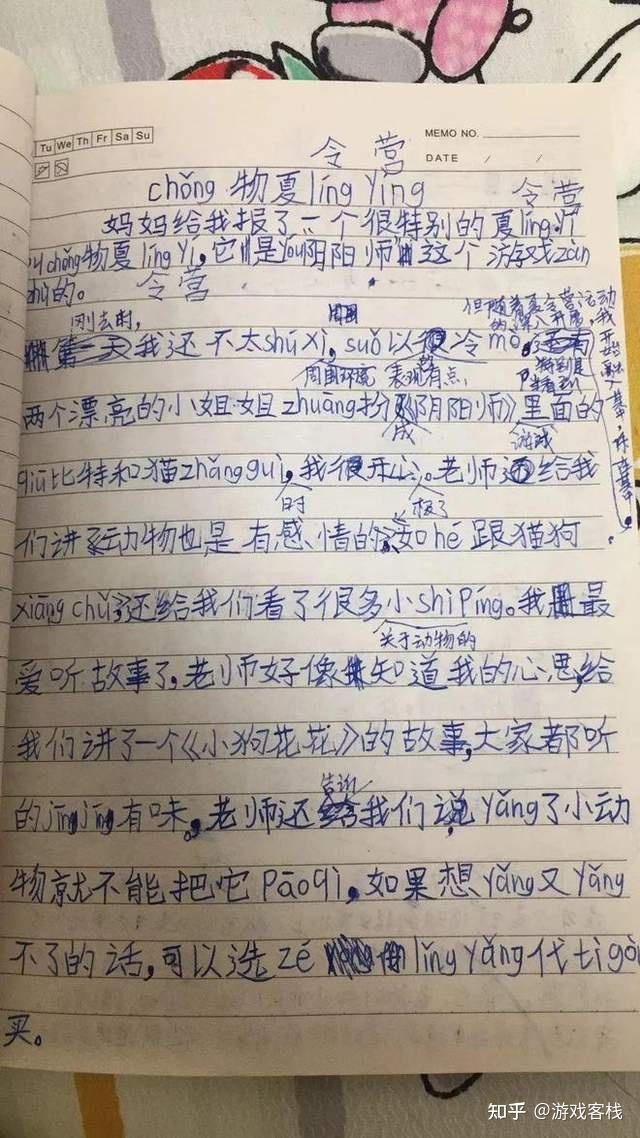 Tu We Th Fr Sa Su
MEMO NO.
DATE / /
令营
chǒng物夏líng yíng
令营
妈妈给我报了一个很特别的夏líng yí
chǒng物夏líng yí,它是yóu阴阳师这个游戏zàn
zhù的。
令营
刚去时,
周围
但随着夏令营活动
的深入开展,我
第一天我还不太shú xī,suǒ以很冷mò,还有
周围环境 表现有点
特别是
当看到
两个漂亮的小姐姐zhuāng扮《阴阳师》里面的
成
游戏
qiū比特和猫zhǎng guì,我很开心。老师还给我
时
极了
们讲运动物也是有感情的,如hé跟猫狗
xiāng chǔ,还给我们看了很多小shì pín。我最
关于动物的
爱听故事了,老师好像知道我的心思,给
我们讲了一个《小狗花花》的故事,大家都听
的jīn jīn有味。老师还给我们说yǎng了小动
告诉
物就不能把它Pāo qì,如果想yǎng又yǎng
不了的话,可以选zé lǐng yǎng代tì gòu
买。
知乎 @游戏客栈